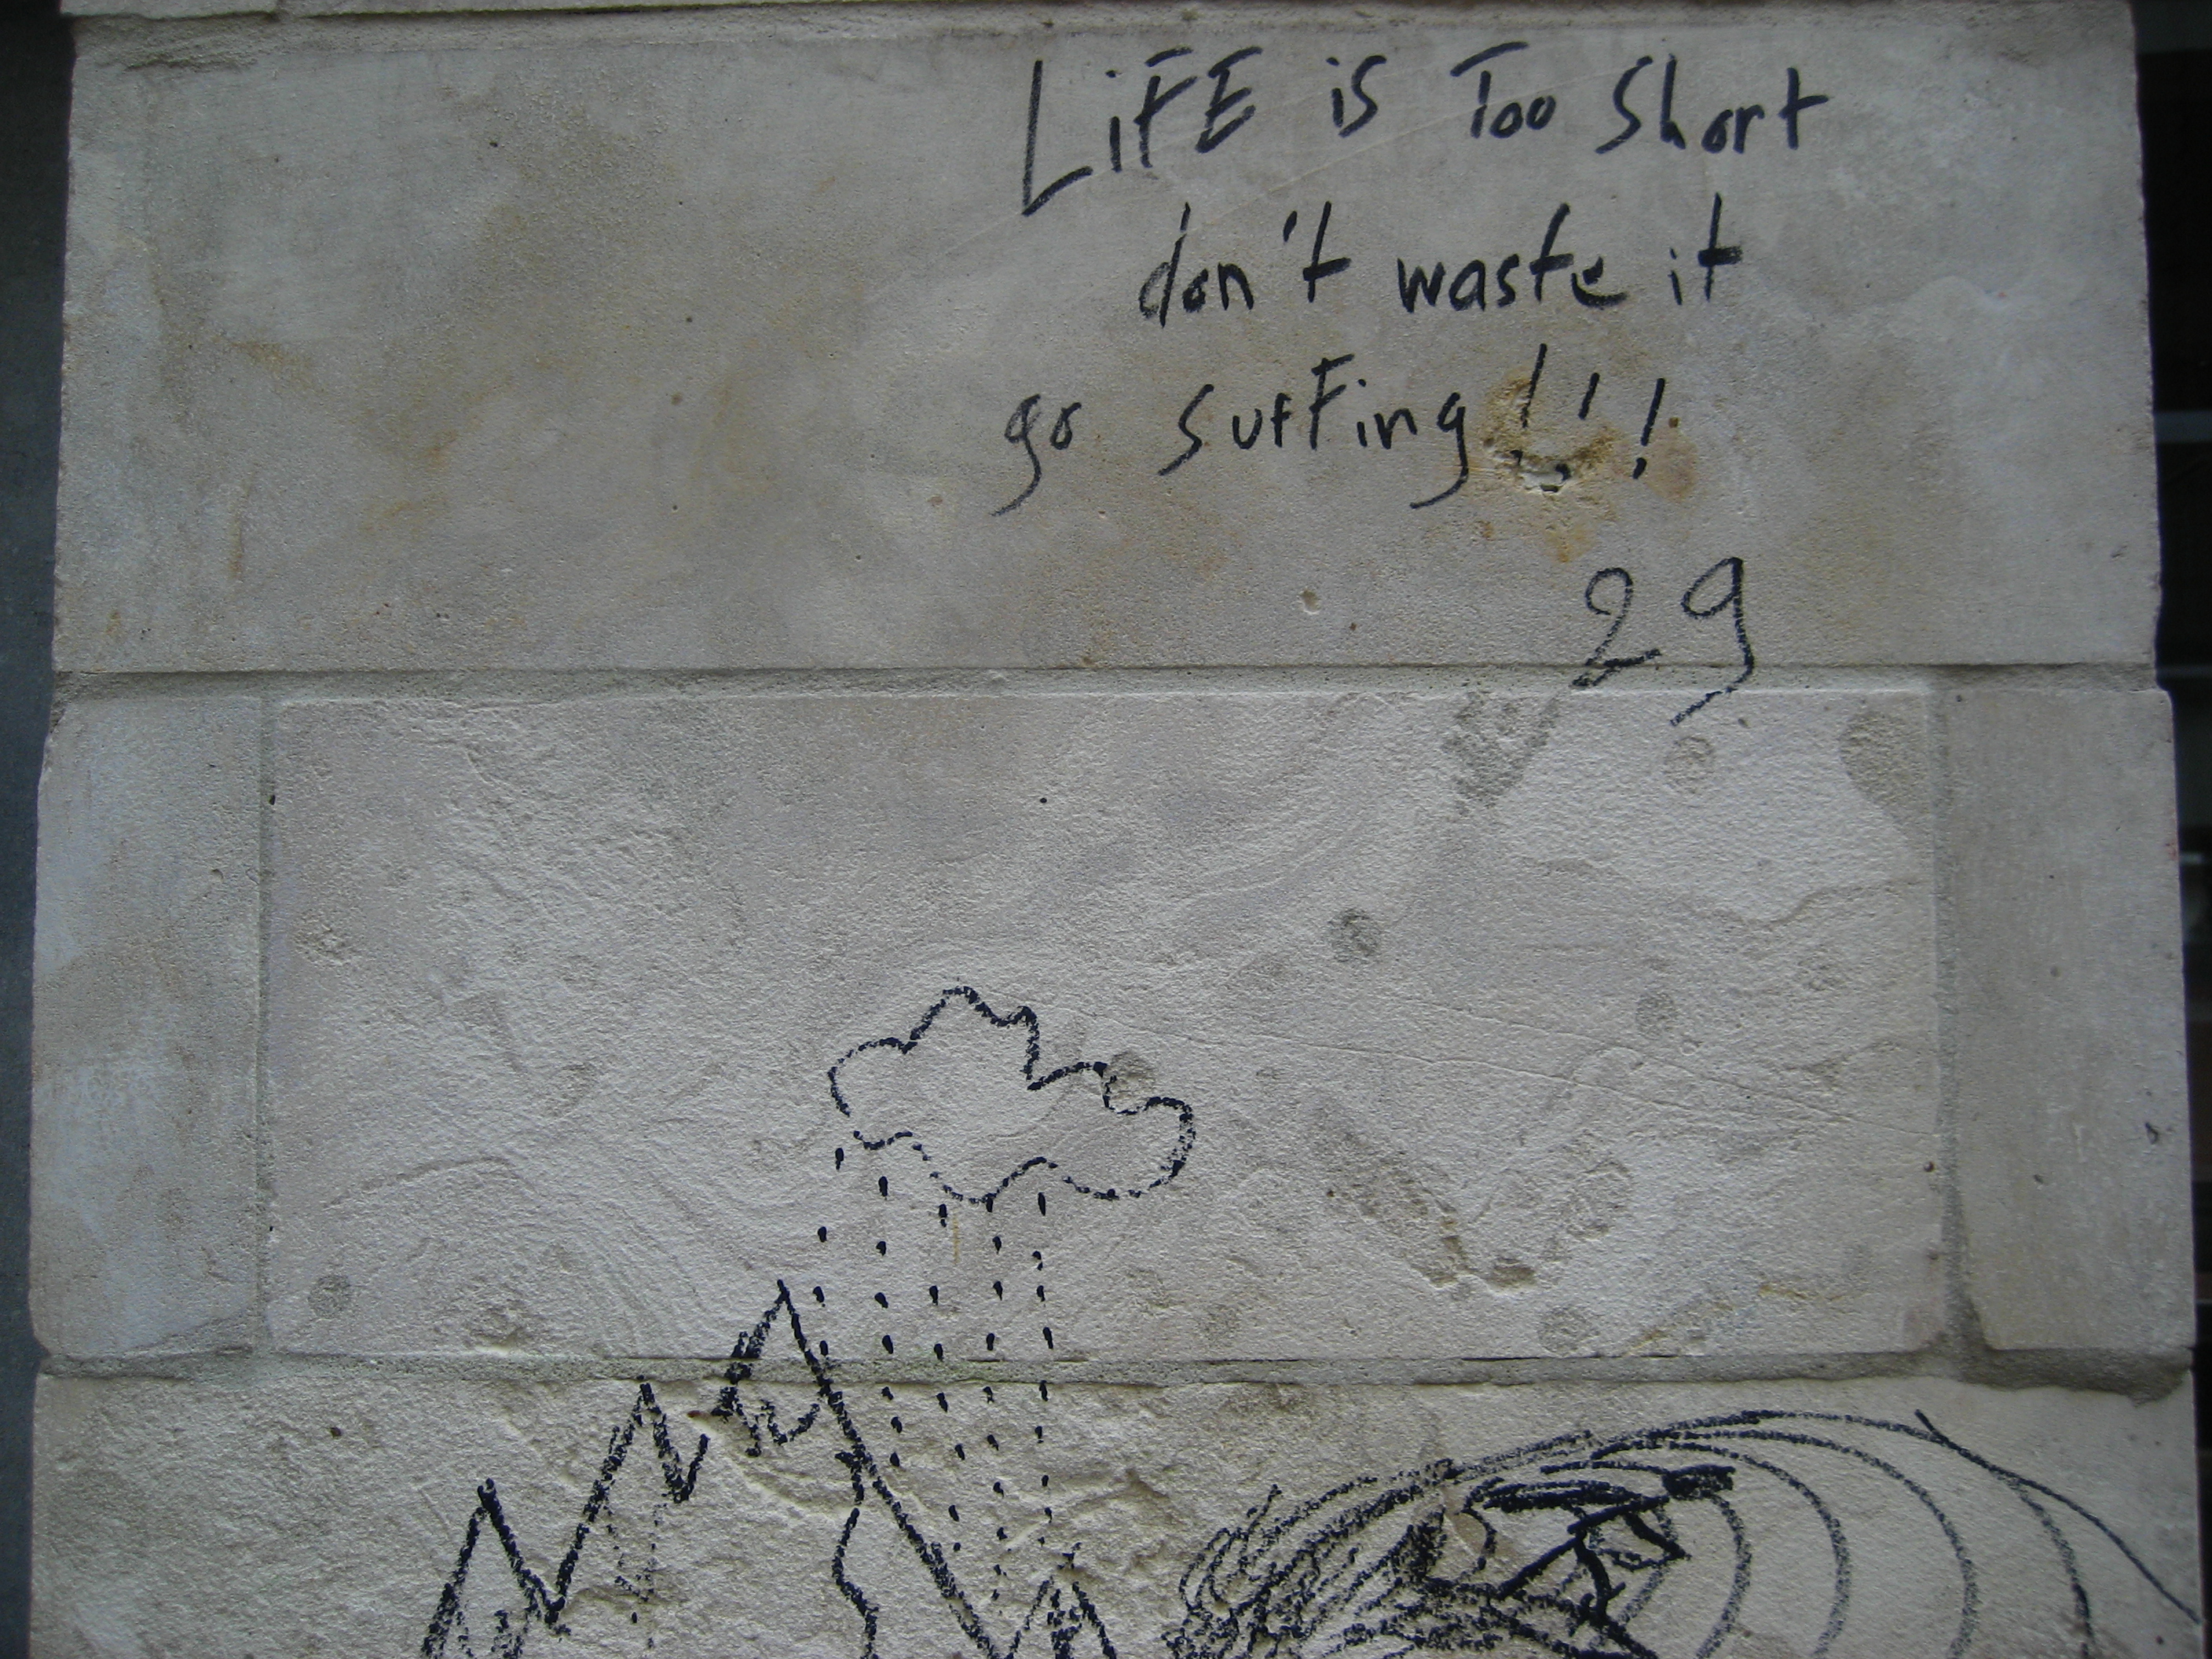 LiFE is Too Short
don't waste it
go surFing!!!
29